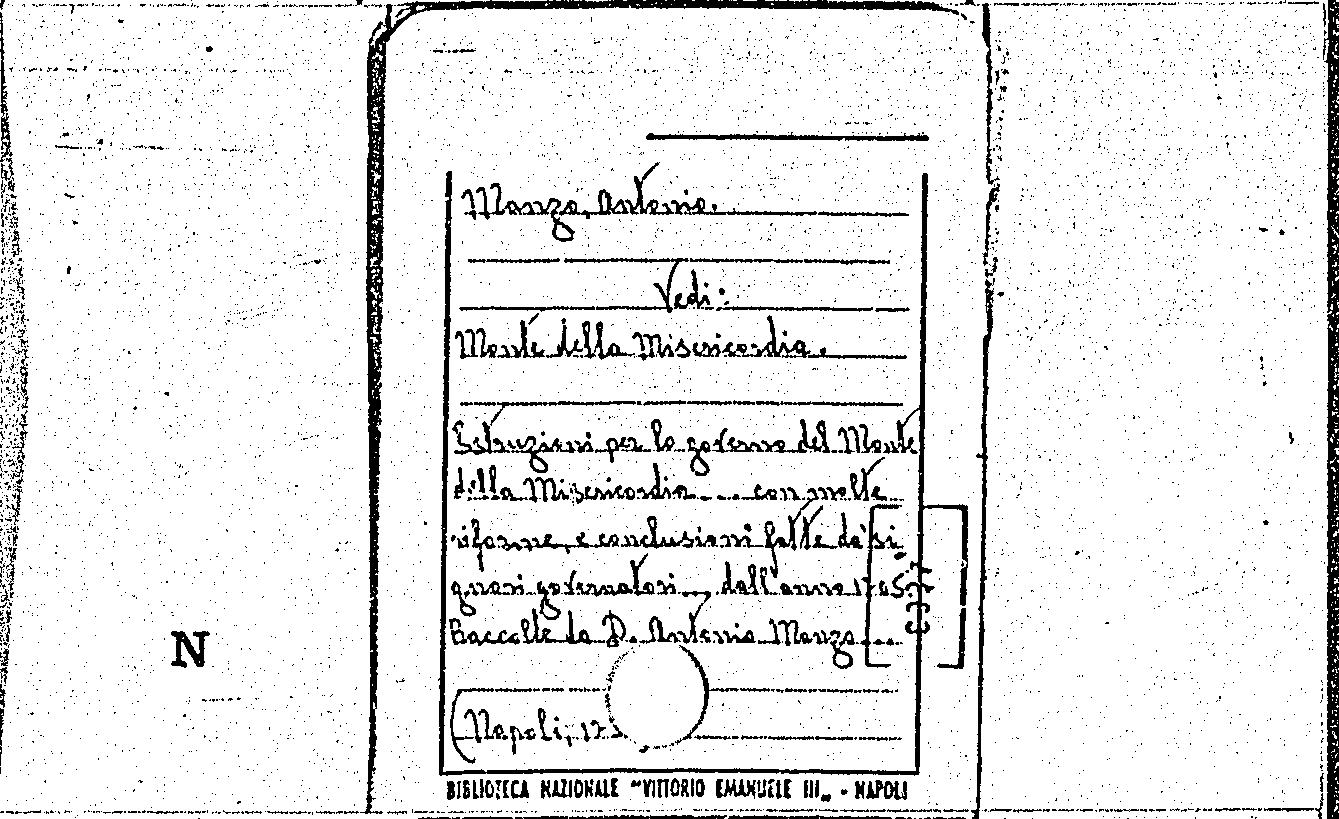 Manzo, Antonio.
Vedi:
Monte della Misericordia.
Istruzioni per lo governo del Monte
della Misericordia.... con molte
riforme, e conclusioni fatte da' si
gnori governatori.... dall'anno 1705.
Raccolte da D. Antonio Manzo....
(Napoli, 17
N
BIBLIOTECA NAZIONALE "VITTORIO EMANUELE III„ - NAPOLI